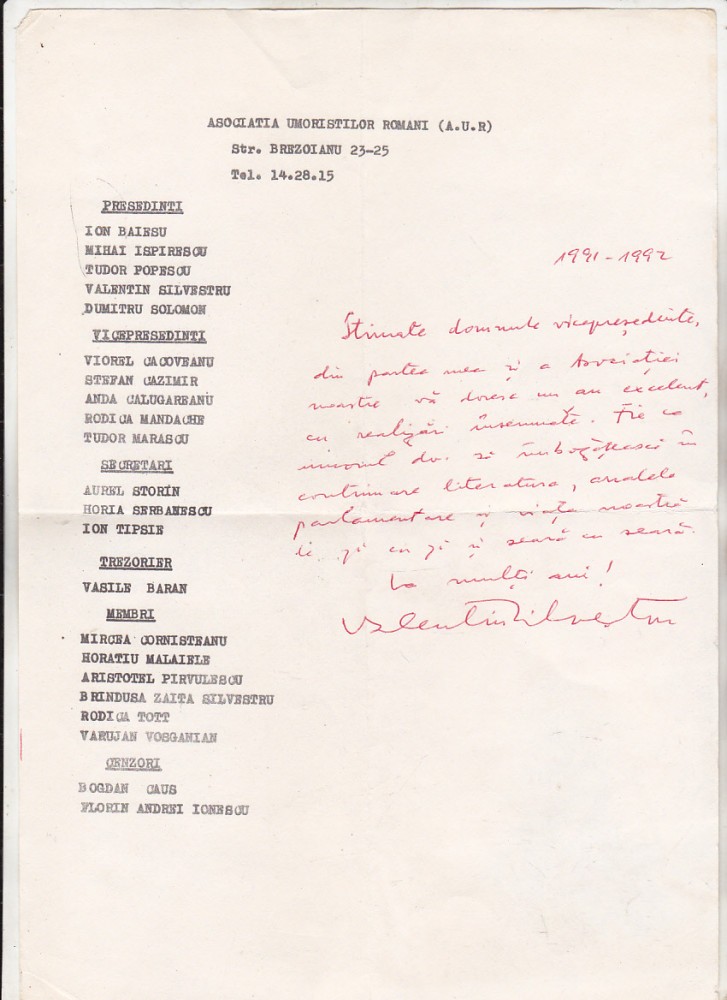 ASOCIATIA UMORISTILOR ROMANI (A.U.R)
Str. BREZOIANU 23-25
Tel. 14.28.15
PRESEDINTI
ION BAIESU
MIHAI ISPIRESCU
TUDOR POPESCU
VALENTIN SILVESTRU
DUMITRU SOLOMON
VICEPRESEDINTI
VIOREL CACOVEANU
STEFAN CAZIMIR
ANDA CALUGAREANU
RODICA MANDACHE
TUDOR MARASCU
SECRETARI
AUREL STORIN
HORIA SERBANESCU
ION TIPSIE
TREZORIER
VASILE BARAN
MEMBRI
MIRCEA CORNISTEANU
HORATIU MALAIELE
ARISTOTEL PIRVULESCU
BRINDUSA ZAITA SILVESTRU
RODICA TOTT
VARUJAN VOSGANIAN
CENZORI
BOGDAN CAUS
FLORIN ANDREI IONESCU
1991-1992
Stimate domnule vicepreşedinte,
din partea mea şi a Asociaţiei
noastre vă doresc un an excelent,
cu realizări însemnate. Fie ca
umorul dv. să îmbogăţească în
continuare literatura, analele
parlamentare şi viaţa noastră
zi cu zi şi seară cu seară.
La mulţi ani!
Valentin Silvestru